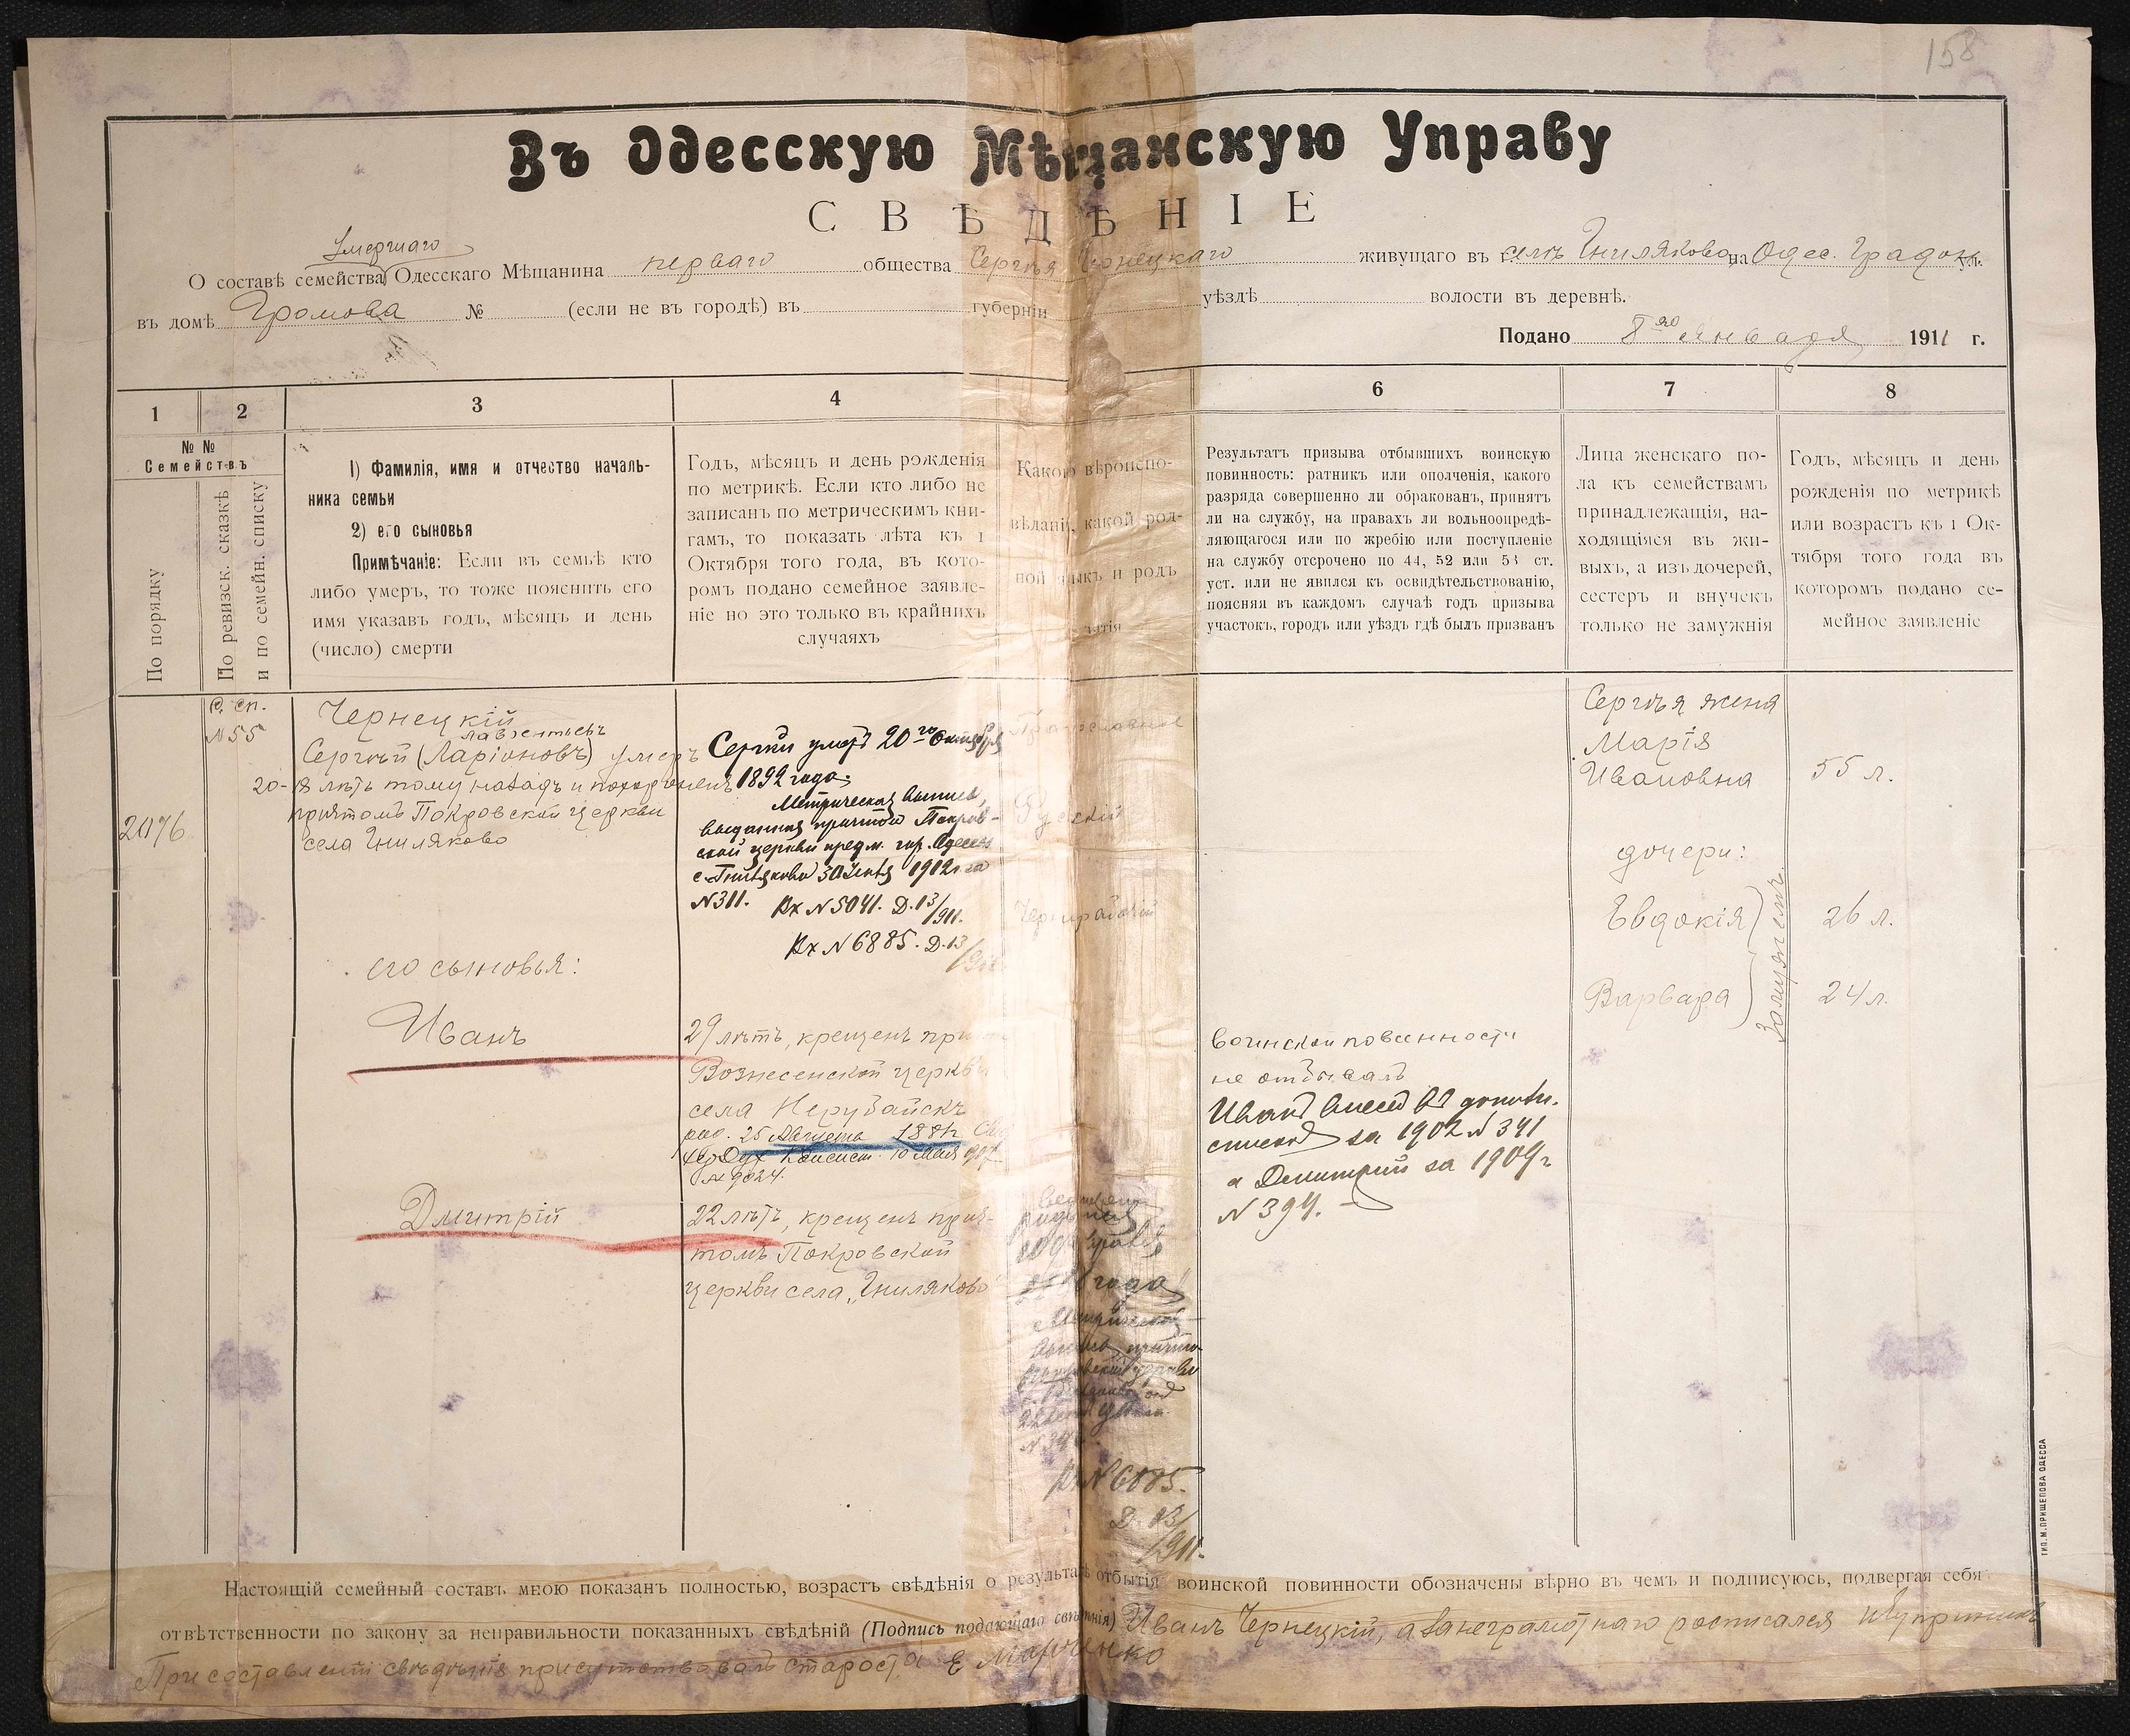 158
Въ Одесскую Мѣщанскую Управу
СВѢДѢНІЕ
Умершаго
О составѣ семейства Одесскаго Мѣщанина перваго общества Сергѣя Чернецкаго живущаго въ г. селѣ Гниляково на Одес. Градон. ул.
въ домѣ Громова № (если не въ городѣ) въ губерніи уѣздѣ волости въ деревнѣ.
Подано 8го Января 1911 г.
1
2
3
4
6
7
8
№ №
Семействъ
По порядку
По ревизск. сказкѣ
и по семейн. списку
1) Фамилія, имя и отчество началь-
ника семьи
2) его сыновья
Примѣчаніе: Если въ семьѣ кто
либо умеръ, то тоже пояснить его
имя указавъ годъ, мѣсяцъ и день
(число) смерти
Годъ, мѣсяцъ и день рожденія
по метрикѣ. Если кто либо не
записанъ по метрическимъ кни-
гамъ, то показать лѣта къ 1
Октября того года, въ кото-
ромъ подано семейное заявле-
ніе но это только въ крайнихъ
случаяхъ
Какого вѣроиспо-
вѣданія, какой род-
ной языкъ и родъ
занятія
Результатъ призыва отбывшихъ воинскую
повинность: ратникъ или ополченія, какого
разряда совершенно ли обракованъ, принятъ
ли на службу, на правахъ ли вольноопредѣ-
ляющагося или по жребію или поступленіе
на службу отсрочено по 44, 52 или 53 ст.
уст. или не явился къ освидѣтельствованію,
поясняя въ каждомъ случаѣ годъ призыва
участокъ, городъ или уѣздъ гдѣ былъ призванъ
Лица женскаго по-
ла къ семействамъ
принадлежащія, на-
ходящіяся въ жи-
выхъ, а изъ дочерей,
сестеръ и внучекъ
только не замужнія
Годъ, мѣсяцъ и день
рожденія по метрикѣ
или возрастъ къ 1 Ок-
тября того года въ
которомъ подано се-
мейное заявленіе
2076
С. сп.
№55
Чернецкій
Лаврентьевъ
Сергѣй (Ларіоновъ) умеръ
20-18 лѣтъ тому назадъ и похороненъ
причтомъ Покровской церкви
села Гниляково
его сыновья:
Иванъ
Дмитрій
Сергѣй умеръ 20го Октября
1892 года.
Метрическая выпись,
выданная причтомъ Покров-
ской церкви предм. гор. Одессы
с. Гниляково 30 1912 г. за
№311. Вх №5041. Д.13/911.
Вх №6885. Д.13/
29 лѣтъ, крещенъ
Вознесенской церкви
села Нерубайскъ
род. 25 Августа 188
Дух Консист. 10 Мая 907
№9024.
22 лѣтъ, крещенъ прич-
томъ Покровской
церкви села „Гниляково"
Православное
Русскій
Чернорабочій
года
Вх №6885.
Д. 13/
1911.
воинской повинности
не отбывалъ
Иванъ внесен въ дополн.
списокъ за 1902 №341
а Дмитрий за 1909 г
№394.
Сергѣя жена
Марія
Ивановна
55 л.
дочери:
Евдокія
26 л.
Варвара
24 л.
Замужемъ.
Настоящій семейный составъ мною показанъ полностью, возрастъ свѣдѣнія о результатѣ отбытія воинской повинности обозначены вѣрно въ чемъ и подписуюсь, подвергая себя
отвѣтственности по закону за неправильности показанныхъ свѣдѣній (Подпись подающаго свѣдѣнія) Иванъ Чернецкій, а за неграмотнаго росписался
При составленіи свѣдѣнія присутствовалъ староста Е Марченко
ТИП. М. ПРИЩЕПОВА ОДЕССА